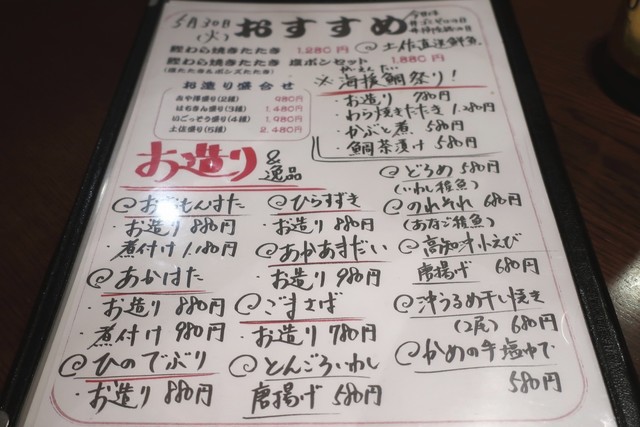 5月30日(火)
おすすめ
今日は
鰹わら焼きたたき 1,280円
鰹わら焼きたたき 塩ポンセット 1,880円
(塩たたき&ポンズたたき)
@土佐直送鮮魚
お造り盛合せ
みや澤盛り(2種) 980円
はちきん盛り(3種) 1,480円
いごっそう盛り(4種) 1,980円
土佐盛り(5種) 2,480円
かいえんたい
※海援鯛祭り!
・お造り 780円
・わら焼きたたき 1,280円
・かぶと煮 580円
・鯛茶漬け 580円
お造り&逸品
・お造り 880円
・煮付け 1,180円
@あかはた
・お造り 880円
・煮付け 980円
@ひのでぶり
・お造り 880円
@ひらすずき
・お造り 880円
@あかあまだい
・お造り 980円
@ごまさば
お造り 780円
@とんごろいわし
唐揚げ 580円
@どろめ 580円
(いわし稚魚)
@のれそれ 680円
(あなご稚魚)
@高知沖小えび
唐揚げ 680円
@沖うるめ干し焼き
(2尾) 680円
@かめの手塩ゆで
580円